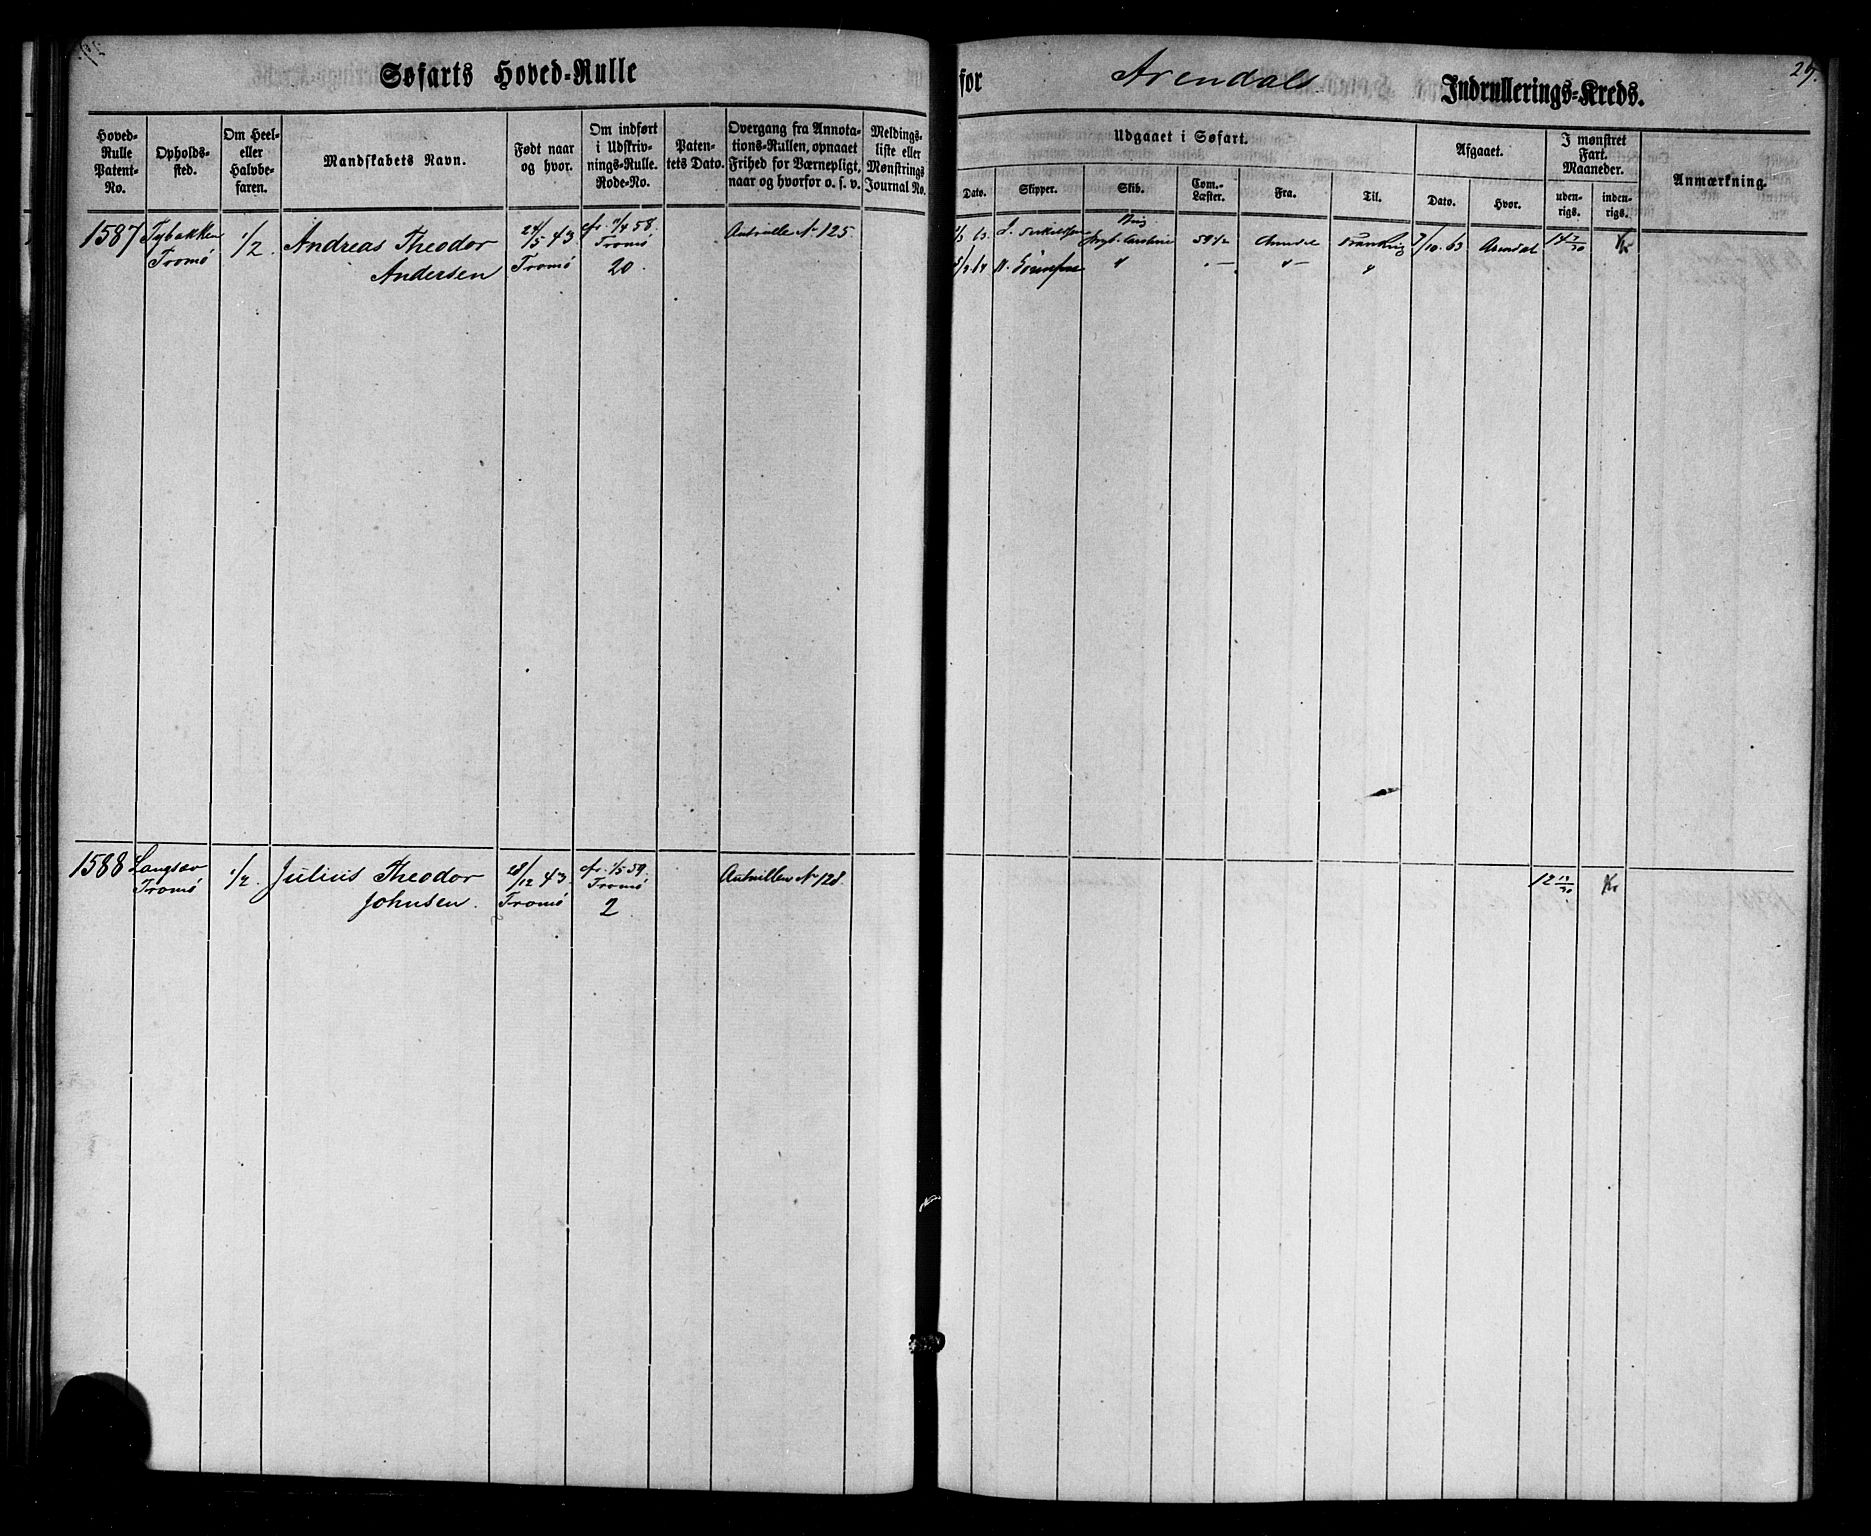 Søfarts Hoved-Rulle for Arendals Indrullerings-Kreds.
29.
Hoved-Rulle Patent-No.
Opholds-sted.
Om Heel- eller Halvbe-faren.
Mandskabets Navn.
Født naar og hvor.
Om indført i Udskriv-nings-Rulle. Rode-No.
Paten-tets Dato.
Overgang fra Annota-tions-Rullen, opnaaet Frihed for Værnepligt, naar og hvorfor o. s. v.
Meldings-liste eller Mønstrings Journal No.
Udgaaet i Søfart.
Dato.
Skipper.
Skib.
Com.-Læster.
Fra.
Til.
Afgaaet.
Dato.
Hvor.
I mønstret Fart. Maaneder.
uden-rigs.
inden-rigs.
Anmærkning.
1587 Tybakken 1/2 Andreas Theodor 24/5 43 58. No 125 Brig 59 1/2 Arendal 7/10 63 Arendal 14
Tromø Andersen Tromø Tromø 20.
1588 1/2. Julius Theodor 28/12 43. 1/5 59. No 128. 12
Tromø Johnsen. Tromø Tromø 2